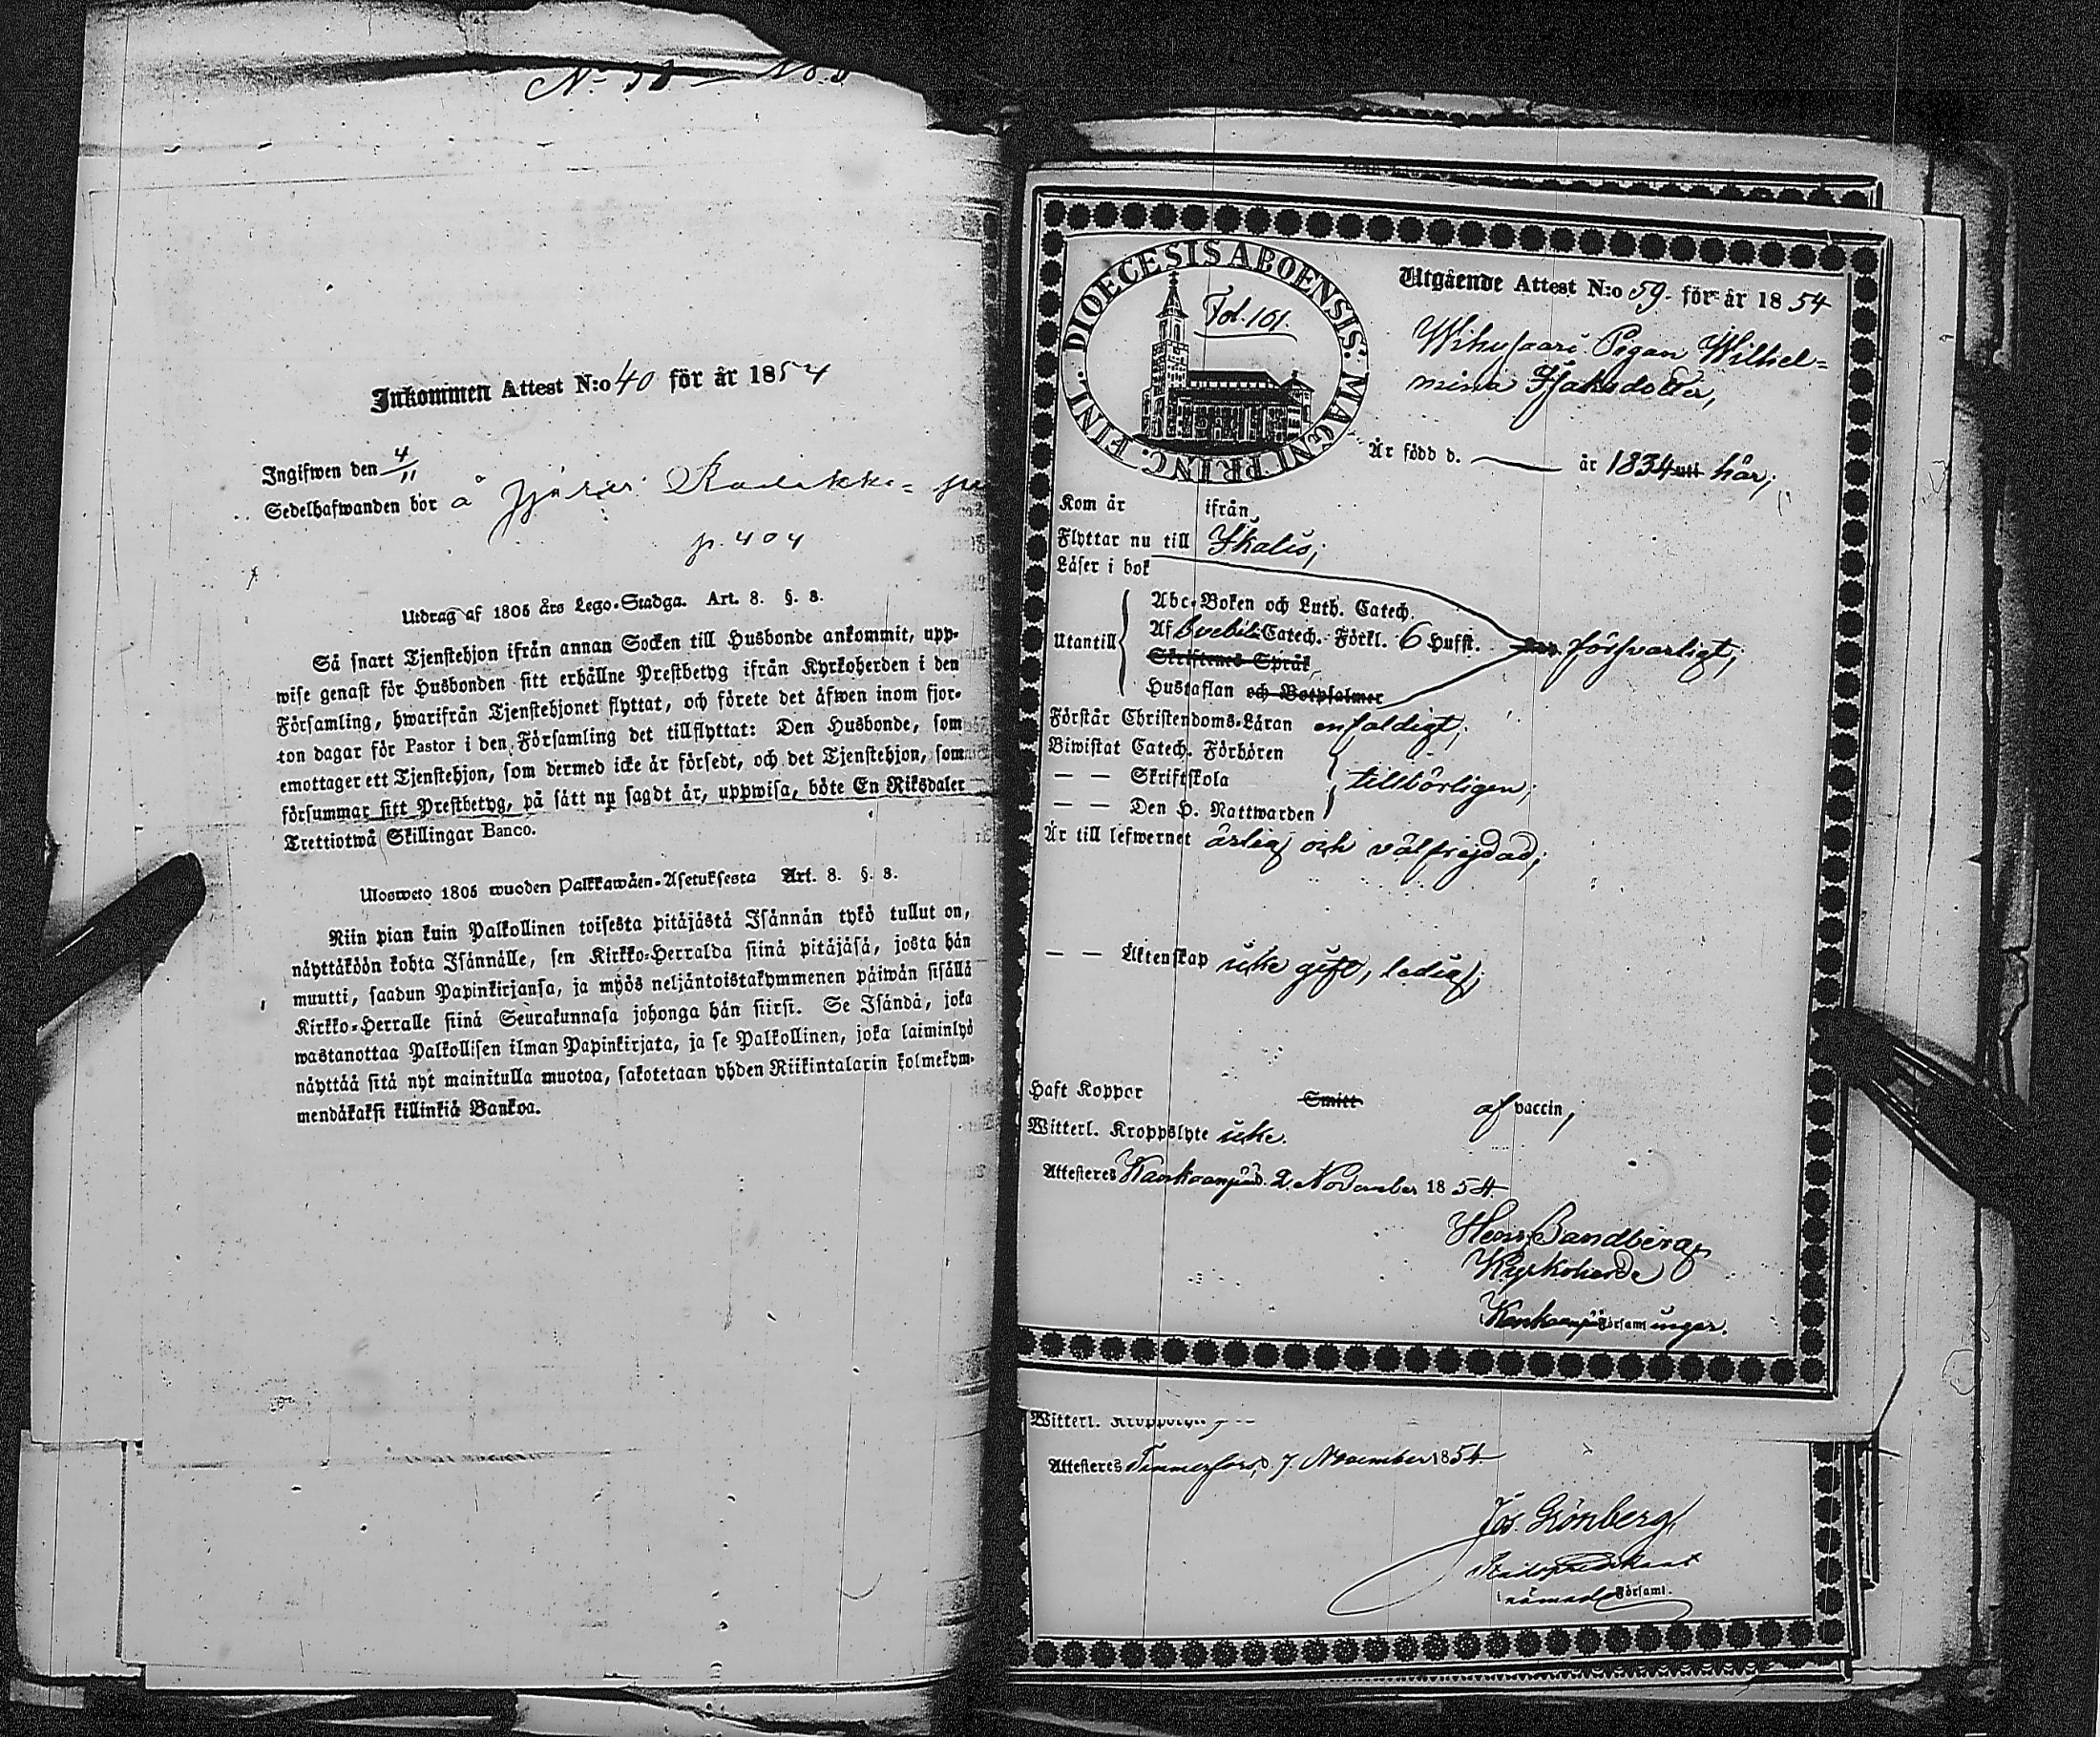 Inkommen Attest N:o 40 för år 1854
Ingifwen den 4/11
Sedelhafwanden bor å
p. 404
Utdrag af 1805 års Lego-Stadga. Art. 8. §. 8.
Så snart Tjenstehjon ifrån annan Socken till Husbonde ankommit, upp-
wise genast för Husbonden sitt erhållne Prestbetyg ifrån Kyrkoherden i den
Församling, hwarifrån Tjenstehjonet flyttat, och förete det äfwen inom fjor-
ton dagar för Pastor i den Församling det tillflyttat: Den Husbonde, som
emottager ett Tjenstehjon, som dermed icke är försedt, och det Tjenstehjon, som
försummar sitt Prestbetyg, på sätt nu sagdt är, uppwisa, böte En Riksdaler
Trettiotwå Skillingar Banco.
Ulosweto 1805 wuoden Palkkawäen-Asetuksesta Art. 8. §. 8.
Niin pian kuin Palkollinen toisesta pitäjästä Isännän tykö tullut on,
näyttäköön kohta Isännälle, sen Kirkko-Herralda siinä pitäjäsä, josta hän
muutti, saadun Papinkirjansa, ja myös neljäntoistakymmenen päiwän sisällä
Kirkko-Herralle siinä Seurakunnasa johonga hän siirsi. Se Isändä, joka
wastanottaa Palkollisen ilman Papinkirjata, ja se Palkollinen, joka laiminlyö
näyttää sitä nyt mainitulla muotoa, sakotetaan yhden Riikintalarin kolmekym-
mendäkaksi killinkiä Bankoa.
DIOECESIS ABOENSIS: MAGNI PRINC. FINL.
Fol. 161.
Utgående Attest N:o 59. för år 1854
Wihusaari Pigan Wilhel-
mina Isaksdotter,
Är född d. — år 1834 här;
Kom år ifrån
Flyttar nu till Ikalis;
Läser i bok
Abc-Boken och Luth. Catech.
Utantill Af Svebili Catech. Förkl. 6 Hufst. försvarligt;
Skriftenes Språk
Hustaflan och Botpsalmer
Förstår Christendoms-Läran enfaldigt;
Biwistat Catech. Förhören
— — Skriftskola tillbörligen;
— — Den H. Nattwarden
Är till lefwernet ärlig och välfrejdad;
— — Äktenskap icke gift, ledig;
Haft Koppor Smitt af vaccin;
Witterl. Kroppslyte icke.
Attesteres Kankaanpää d. 2 November 1854
Henr. Sandberg
Kyrkoherde
i Kankaanpää Församlingar.
Witterl.
Attesteres Tammerfors, d. 7. November 1854
Jos. Grönberg
Stadspredikant
i nämnde Församl.